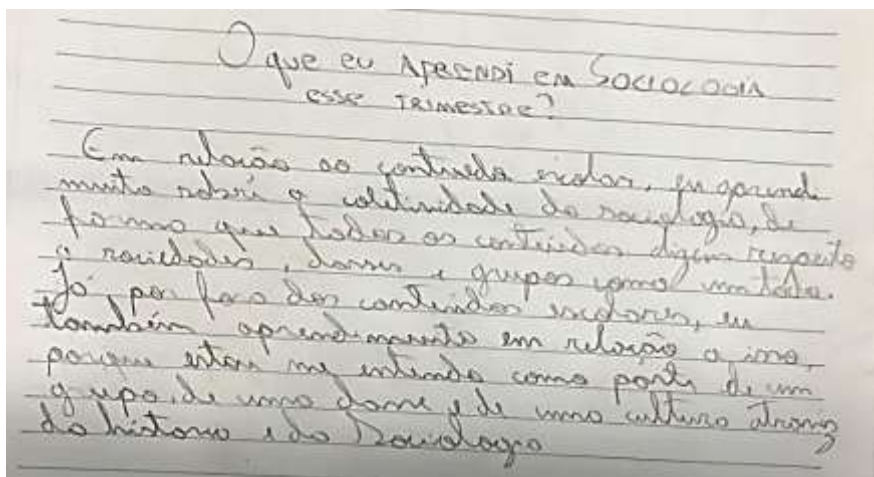 O que eu APRENDi em SOCIOLOGIA
esse TRIMESTRE?
Em relação ao conteúdo escolar, eu aprendi
muito sobre a coletividade da sociologia, de
forma que todos os conteúdos dizem respeito
à sociedades, classes e grupos como um todo.
Já por fora dos conteúdos escolares, eu
também aprendi muito em relação a isso,
porque estou me entendo como parte de um
grupo, de uma classe e de uma cultura através
da história e da Sociologia